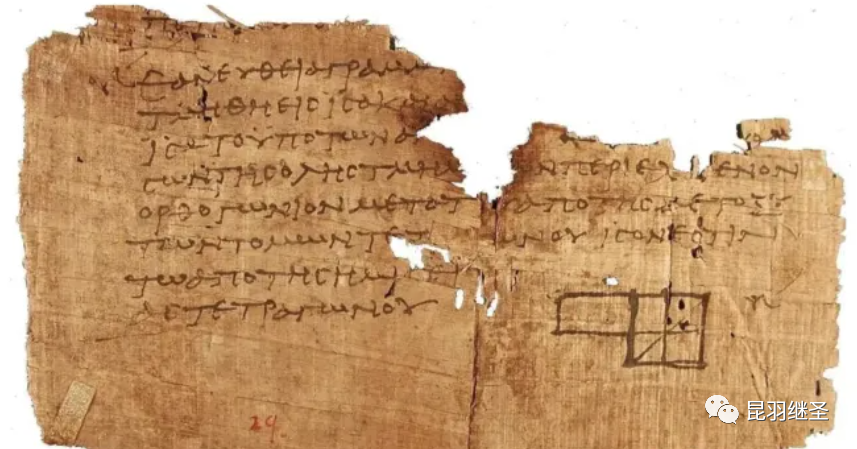 ΕΑΝΕΥΘΕΙΑΓΡΑΜΜ
ΤΜΗΘΗΕΙϹΙϹΑΚΑΙΑΝ
ΙϹΑΤΟΥΠΟΤΩΝΑ
ϹΩΝΤΗϹΟΛΗϹΤΜΗΜ ΝΠΕΡΙΕΧ ΜΕΝΟΝ
ΟΡΘΟΓΩΝΙΟΝΜΕΤΑΤ ΑΠΟΤΗϹΜΕΤΟΞΥ
ΤΩΝΤΟΜΩΝΤΕΤ ΩΝΟΥΙϹΟΝΕϹΤΙΝ
ΤΩΑΠΟΤΗϹΗΜΙϹΕΙ
ΑϹΤΕΤΡΑΓΩΝΟΥ
29.
昆羽继圣